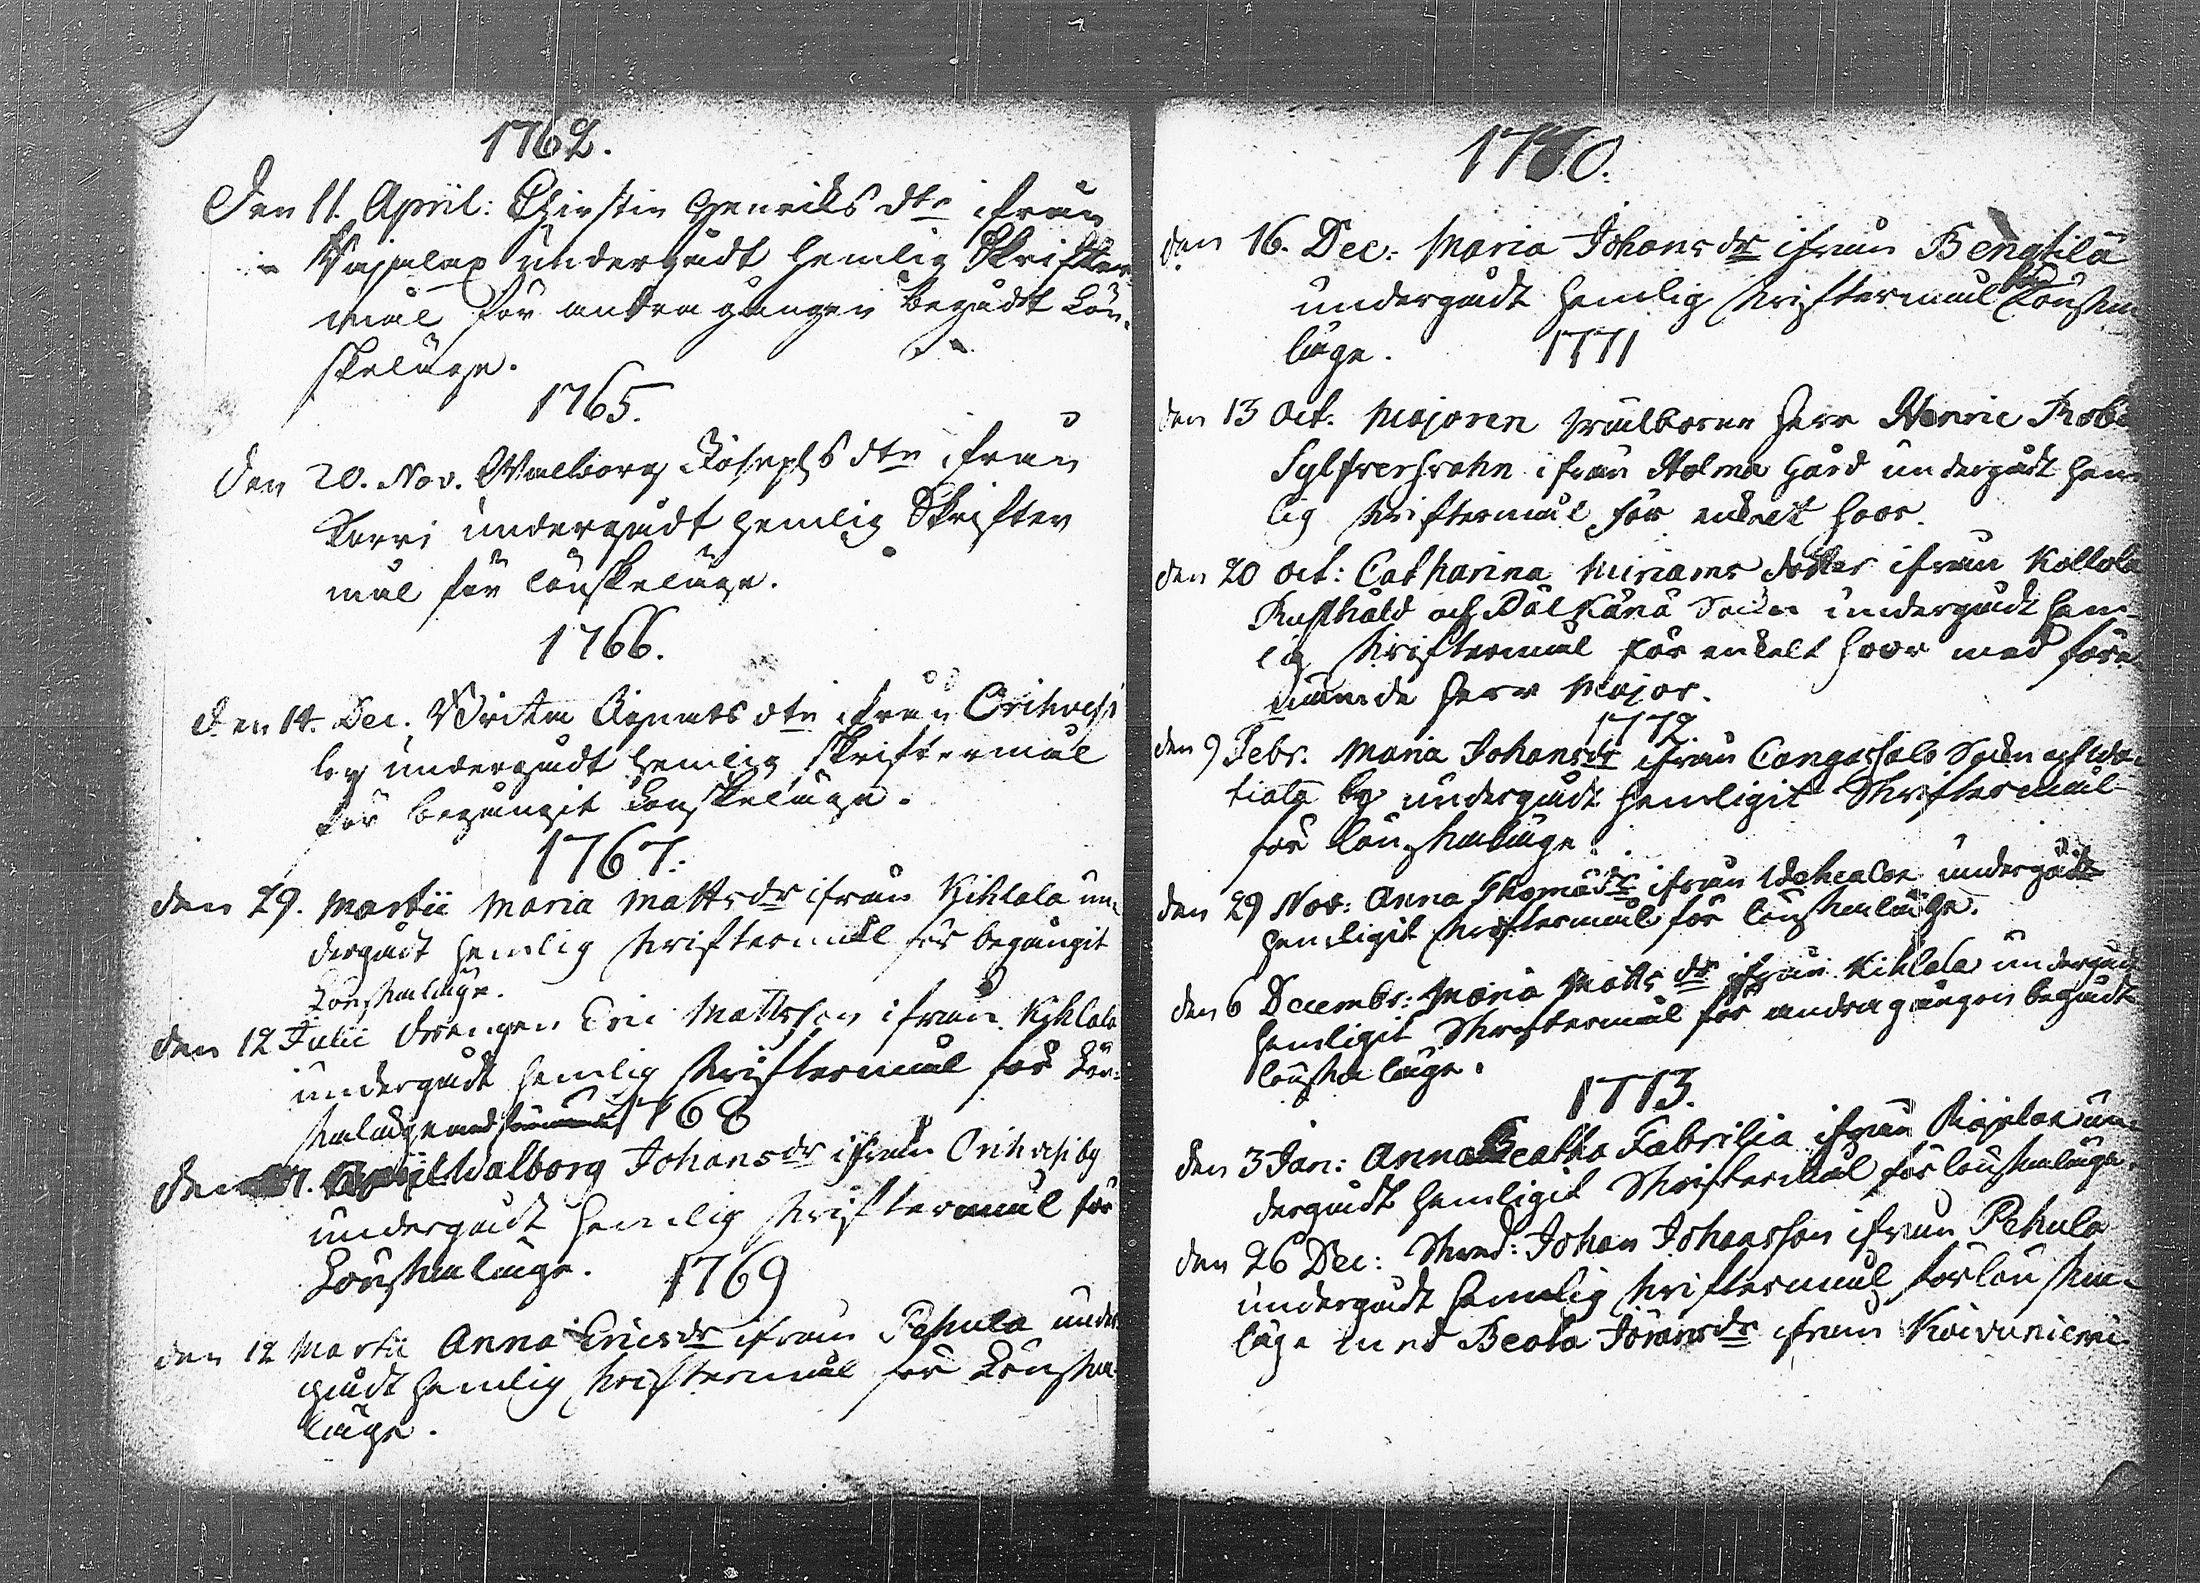 1762.
Den 11. April: Chirstin Henriks dtr ifrån
Vajalax undergådt hemlig Skrifter
mål för andra gången begådt Lön-
skeläge.
1765.
Den 20. Nov. Walborg Josephs dtr ifrån
Korri undergådt hemlig Skrifter
mål för lönskeläge.
1766.
Den 14. Dec. Brita dtr ifrån Orihvesi
by undergådt hemlig skriftermål
för begångit Lonskeläge.
1767.
den 29. Martii Maria Mattsdr ifrån Kihlala un-
dergådt hemlig skriftermål för begångit
Lönskaläge.
den 12 Julii drengen Eric Mattsson ifrån Kyhlala
undergådt hemlig skriftermål för Lön-
skaläge med 1768
Den Walborg Johansdr ifrån Orihvesi by
undergådt hemlig skriftermål för
Lönskaläge. 1769
den 12 Martii Anna Ericsdr ifrån Pehula under
gådt hemlig skriftermål för Lönska-
läge.
1770.
den 16. Dec: Maria Johansdr ifrån Bengtilä
undergådt hemlig skriftermål för Lönska
läge. 1771
den 13 Oct. Majoren välborne Herr Henric
ifrån Holma Gård undergådt hem-
lig skriftermål för enkelt hoor.
den 20 Oct: Catharina dotter ifrån
Rusthåld och Pälkänä Sokn undergådt hem-
lig skriftermål för enkelt hoor med före
nämnde Herr Major.
1772.
den 9 Febr. Maria Johansdr ifrån Cangasala Sokn och
by undergådt hemligit Skriftermål
för lönskaläge.
den 29 Nov: Anna Thomädr ifrån undergådt
hemligit skriftermål för lönskaläge.
den 6 Decembr: Maria Matts dr ifrån Kihlala undergådt
hemligit Skriftermål för andra gången begådt
lönska läge.
1773.
den 3 Jan: Anna Beatha Fabrilia ifrån un-
dergådt hemligit Skriftermål för lönskaläge.
den 26 Dec: Johan Johansson ifrån Pehula
undergådt hemlig skriftermål för lönska-
läge med Beata Jöransdr ifrån Koivuniemi